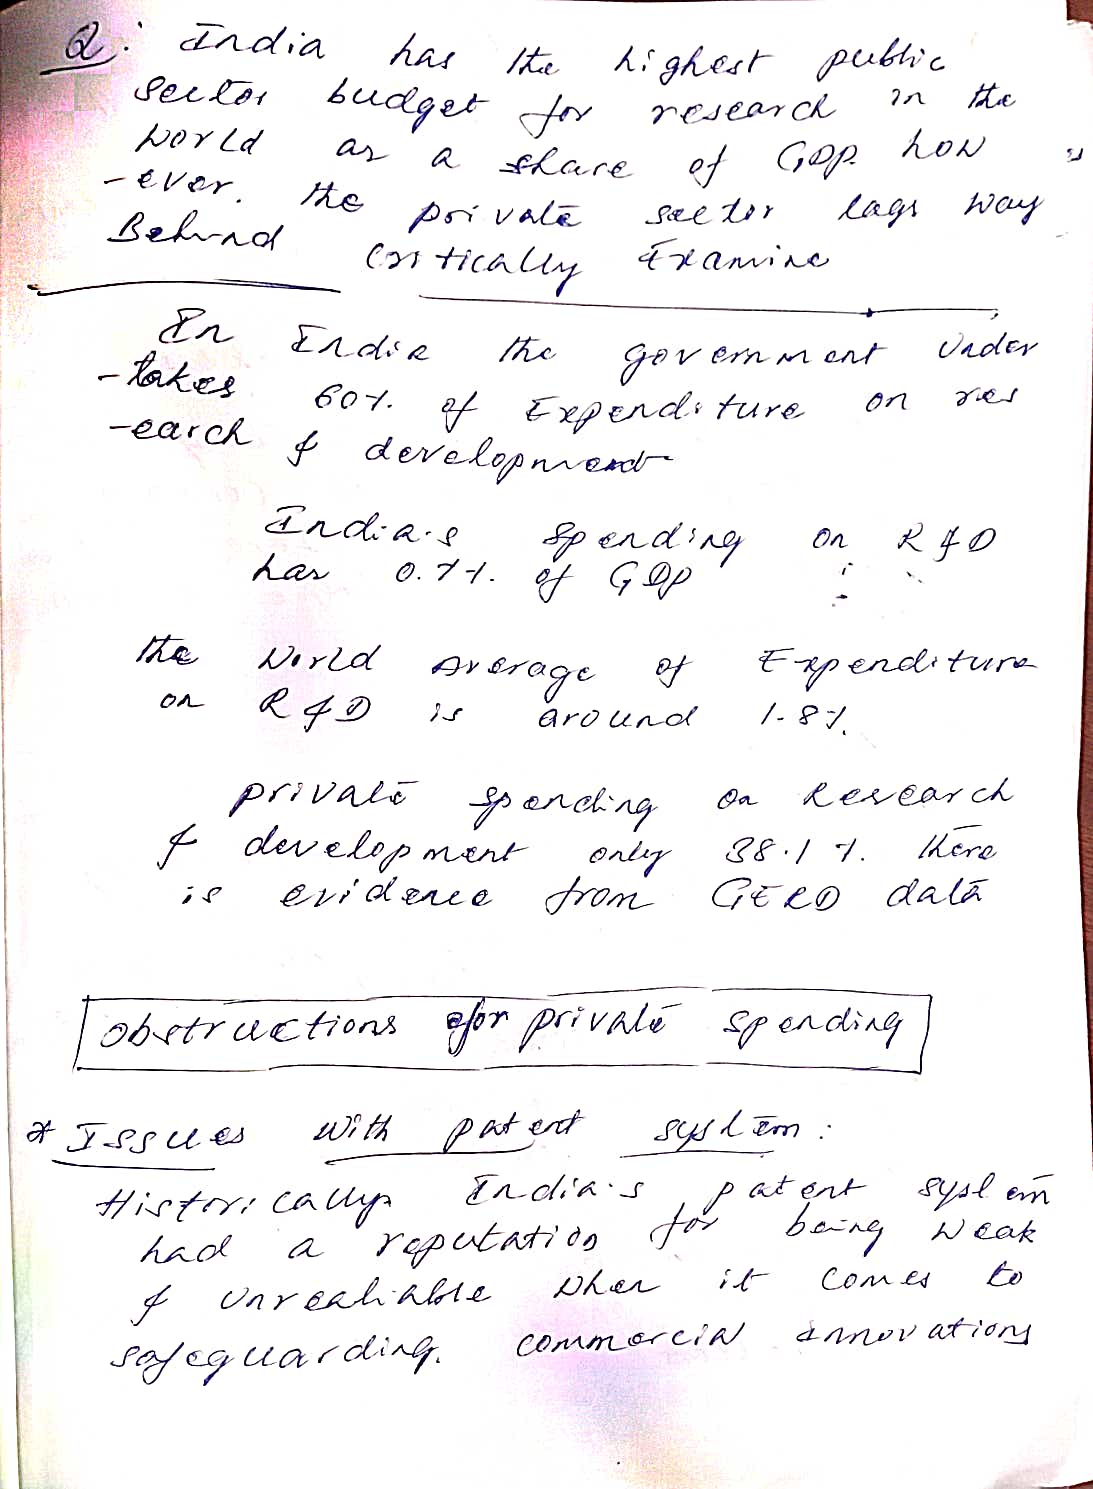 Q: India has the highest public
sector budget for research in the
world as a share of GDP. how
-ever. the private sector lags way
Behind Critically Examine
In India the government Under
-takes 60%. of Expenditure on res
-earch & development
India's spending on R&D
has 0.7%. of GDP
the World Average of Expenditure
on R&D is around 1.8%.
private spending on Research
& development only 38.1%. there
is evidence from GERD data
Obstructions for private spending
* Issues with patent system:
Historically India's patent system
had a reputation for being weak
& unrealiable when it comes to
safeguarding. commercial innovations